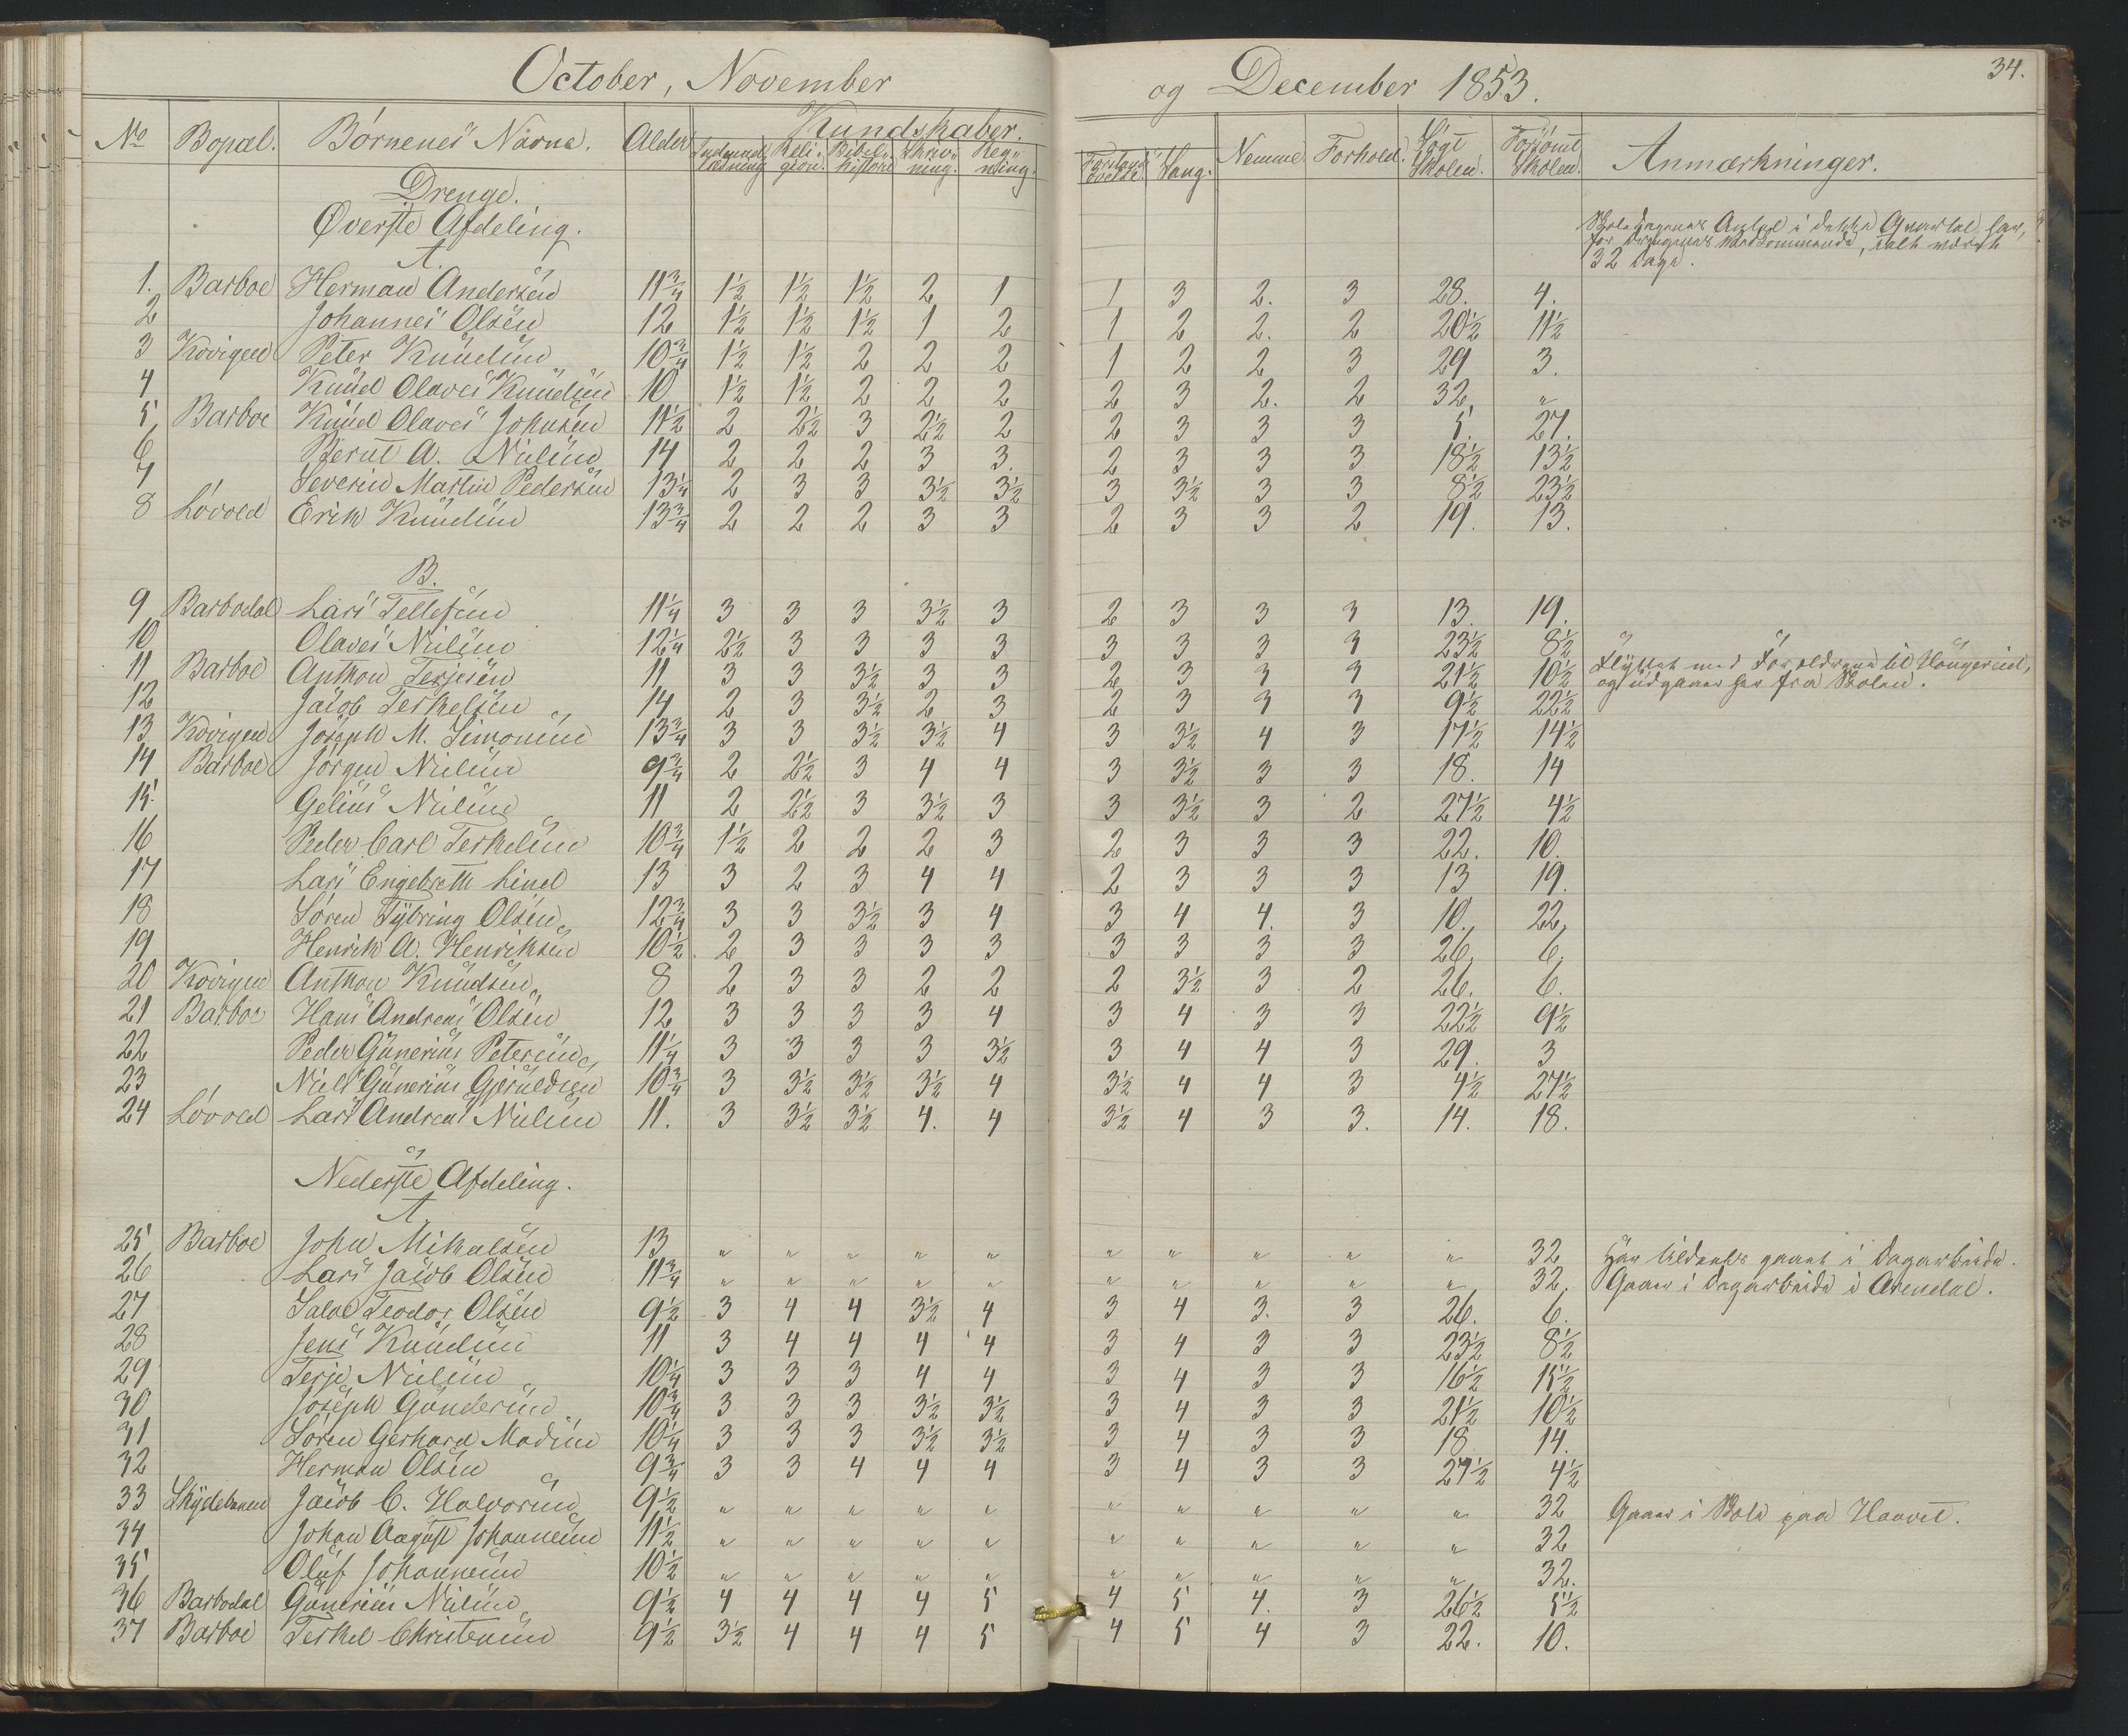 October, November og December 1853. 34.
No Bopæl. Børnenes Navne. Alder Kundskaber. Nemme Forhold. Søgt Skolen. Forsømt Skolen. Anmærkninger.
Indenad Læsning Reli- gion. Bibel- historie Skriv- ning. Reg- ning. Forstands øvelse. Sang.
Drenge.
Øverste Afdeling.
A.
Skoledagenes Antal i dette Qvartal har,
for Drengenes Vedkommende, ialt været
32 Dage.
1. Barboe Herman Andersen 11¾ 1½ 1½ 1½ 2 1 1 3 2. 3 28. 4.
2 Johannes Olsen 12 1½ 1½ 1½ 1 2 1 2 2. 2 20½ 11½
3 Kovigen Peter Knudsen 10¾ 1½ 1½ 2 2 2 1 2 2 3 29 3.
4 Knud Olaves Knudsen 10 1½ 1½ 2 2 2 2 3 2. 2 32 "
5 Barboe Knud Olaves Johnsen 11½ 2 2½ 3 2½ 2 2 3 3 3 5. 27.
6 Bernt A. Nielsen 14 2 2 2 3 3. 2 3 3 3 18½ 13½
7 Severin Martin Pedersen 13¼ 2 3 3 3½ 3½ 3 3½ 3 3 8½ 23½
8 Løvold Erik Knudsen 13¾ 2 2 2 3 3 2 3 3 2 19. 13.
B.
9 Barbodal Lars Tellefsen 11¼ 3 3 3 3½ 3 2 3 3 3 13. 19.
10 Olaves Nielsen 12¼ 2½ 3 3 3 3 3 3 3 3 23½ 8½
11 Barboe Anthon Terjesen 11 3 3 3½ 3 3 2 3 3 3 21½ 10½ Flyttet med Forældrene til Hougerind,
og udgaaer her fra Skolen.
12 Jacob Terkelsen 14 2 3 3½ 2 3 2 3 3 3 9½ 22½
13 Kovigen Joseph M. Simonsen 13¾ 3 3 3½ 3½ 4 3 3½ 4 3 17½ 14½
14 Barboe Jørgen Nielsen 9¾ 2 2½ 3 4 4 3 3½ 3 3 18. 14
15. Gelius Nielsen 11 2 2½ 3 3½ 3 3 3½ 3 2 27½ 4½
16 Peder Carl Terkelsen 10¾ 1½ 2 2 2 3 2 3 3 3 22. 10.
17 Lars Engebreth Lind 13 3 2 3 4 4 2 3 3 3 13 19.
18 Søren Tybring Olsen 12¾ 3 3 3½ 3 4 3 4 4. 3 10. 22.
19 Henrik A. Henriksen 10½ 2 3 3 3 3 3 3 3 3 26. 6.
20 Kovigen Anthon Knudsen 8 2 3 3 2 2 2 3½ 3 2 26. 6.
21 Barboe Hans Andreas Olsen 12 3 3 3 3 4 3 4 3 3 22½ 9½
22 Peder Gunerius Petersen 11¼ 3 3 3 3 3½ 3 4 4 3 29. 3
23 Niels Gunerius Gjeruldsen 10¾ 3 3½ 3½ 3½ 4 3½ 4 4 3 4½ 27½
24 Løvold Lars Andreas Nielsen 11. 3 3½ 3½ 4. 4 3½ 4 3 3. 14. 18.
Nederste Afdeling.
A.
25 Barboe John Mikalsen 13 " " " " " " " " " " 32 Har tildeels gaaet i Dagarbeide.
26 Lars Jacob Olsen 11¾ " " " " " " " " " " 32. Gaaer i Dagarbeide i Arendal.
27 Salve Teodor Olsen 9½ 3 4 4 3½ 4 3 4 3. 3 26. 6.
28 Jens Knudsen 11 3 4 4 4 4 3 4 3 3 23½ 8½
29 Terje Nielsen 10¼ 3 3 3 4 4 3 4 3 3 16½ 15½
30 Joseph Gundersen 10¾ 3 3 3 3½ 3½ 3 4 3 3 21½ 10½
31 Søren Gerhard Madsen 10¼ 3 3 3 3½ 3½ 3 4 3 3 18 14.
32 Herman Olsen 9¾ 3 3 4 4 4 3 4 3 3 27½ 4½
33 Skydebanen Jacob C. Halvorsen 9½ " " " " " " " " " " 32 Gaaer i Skole paa Haavet.
34 Johan August Johannesen 11½ " " " " " " " " " " 32
35 Oluf Johannesen 10½ " " " " " " " " " " 32.
36 Barbodal Gunerius Nielsen 9½ 4 4 4 4 5 4 5 4. 3 26½ 5½
37 Barboe Terkel Christensen 9½ 3½ 4 4 4 5 4 5 4 3 22. 10.